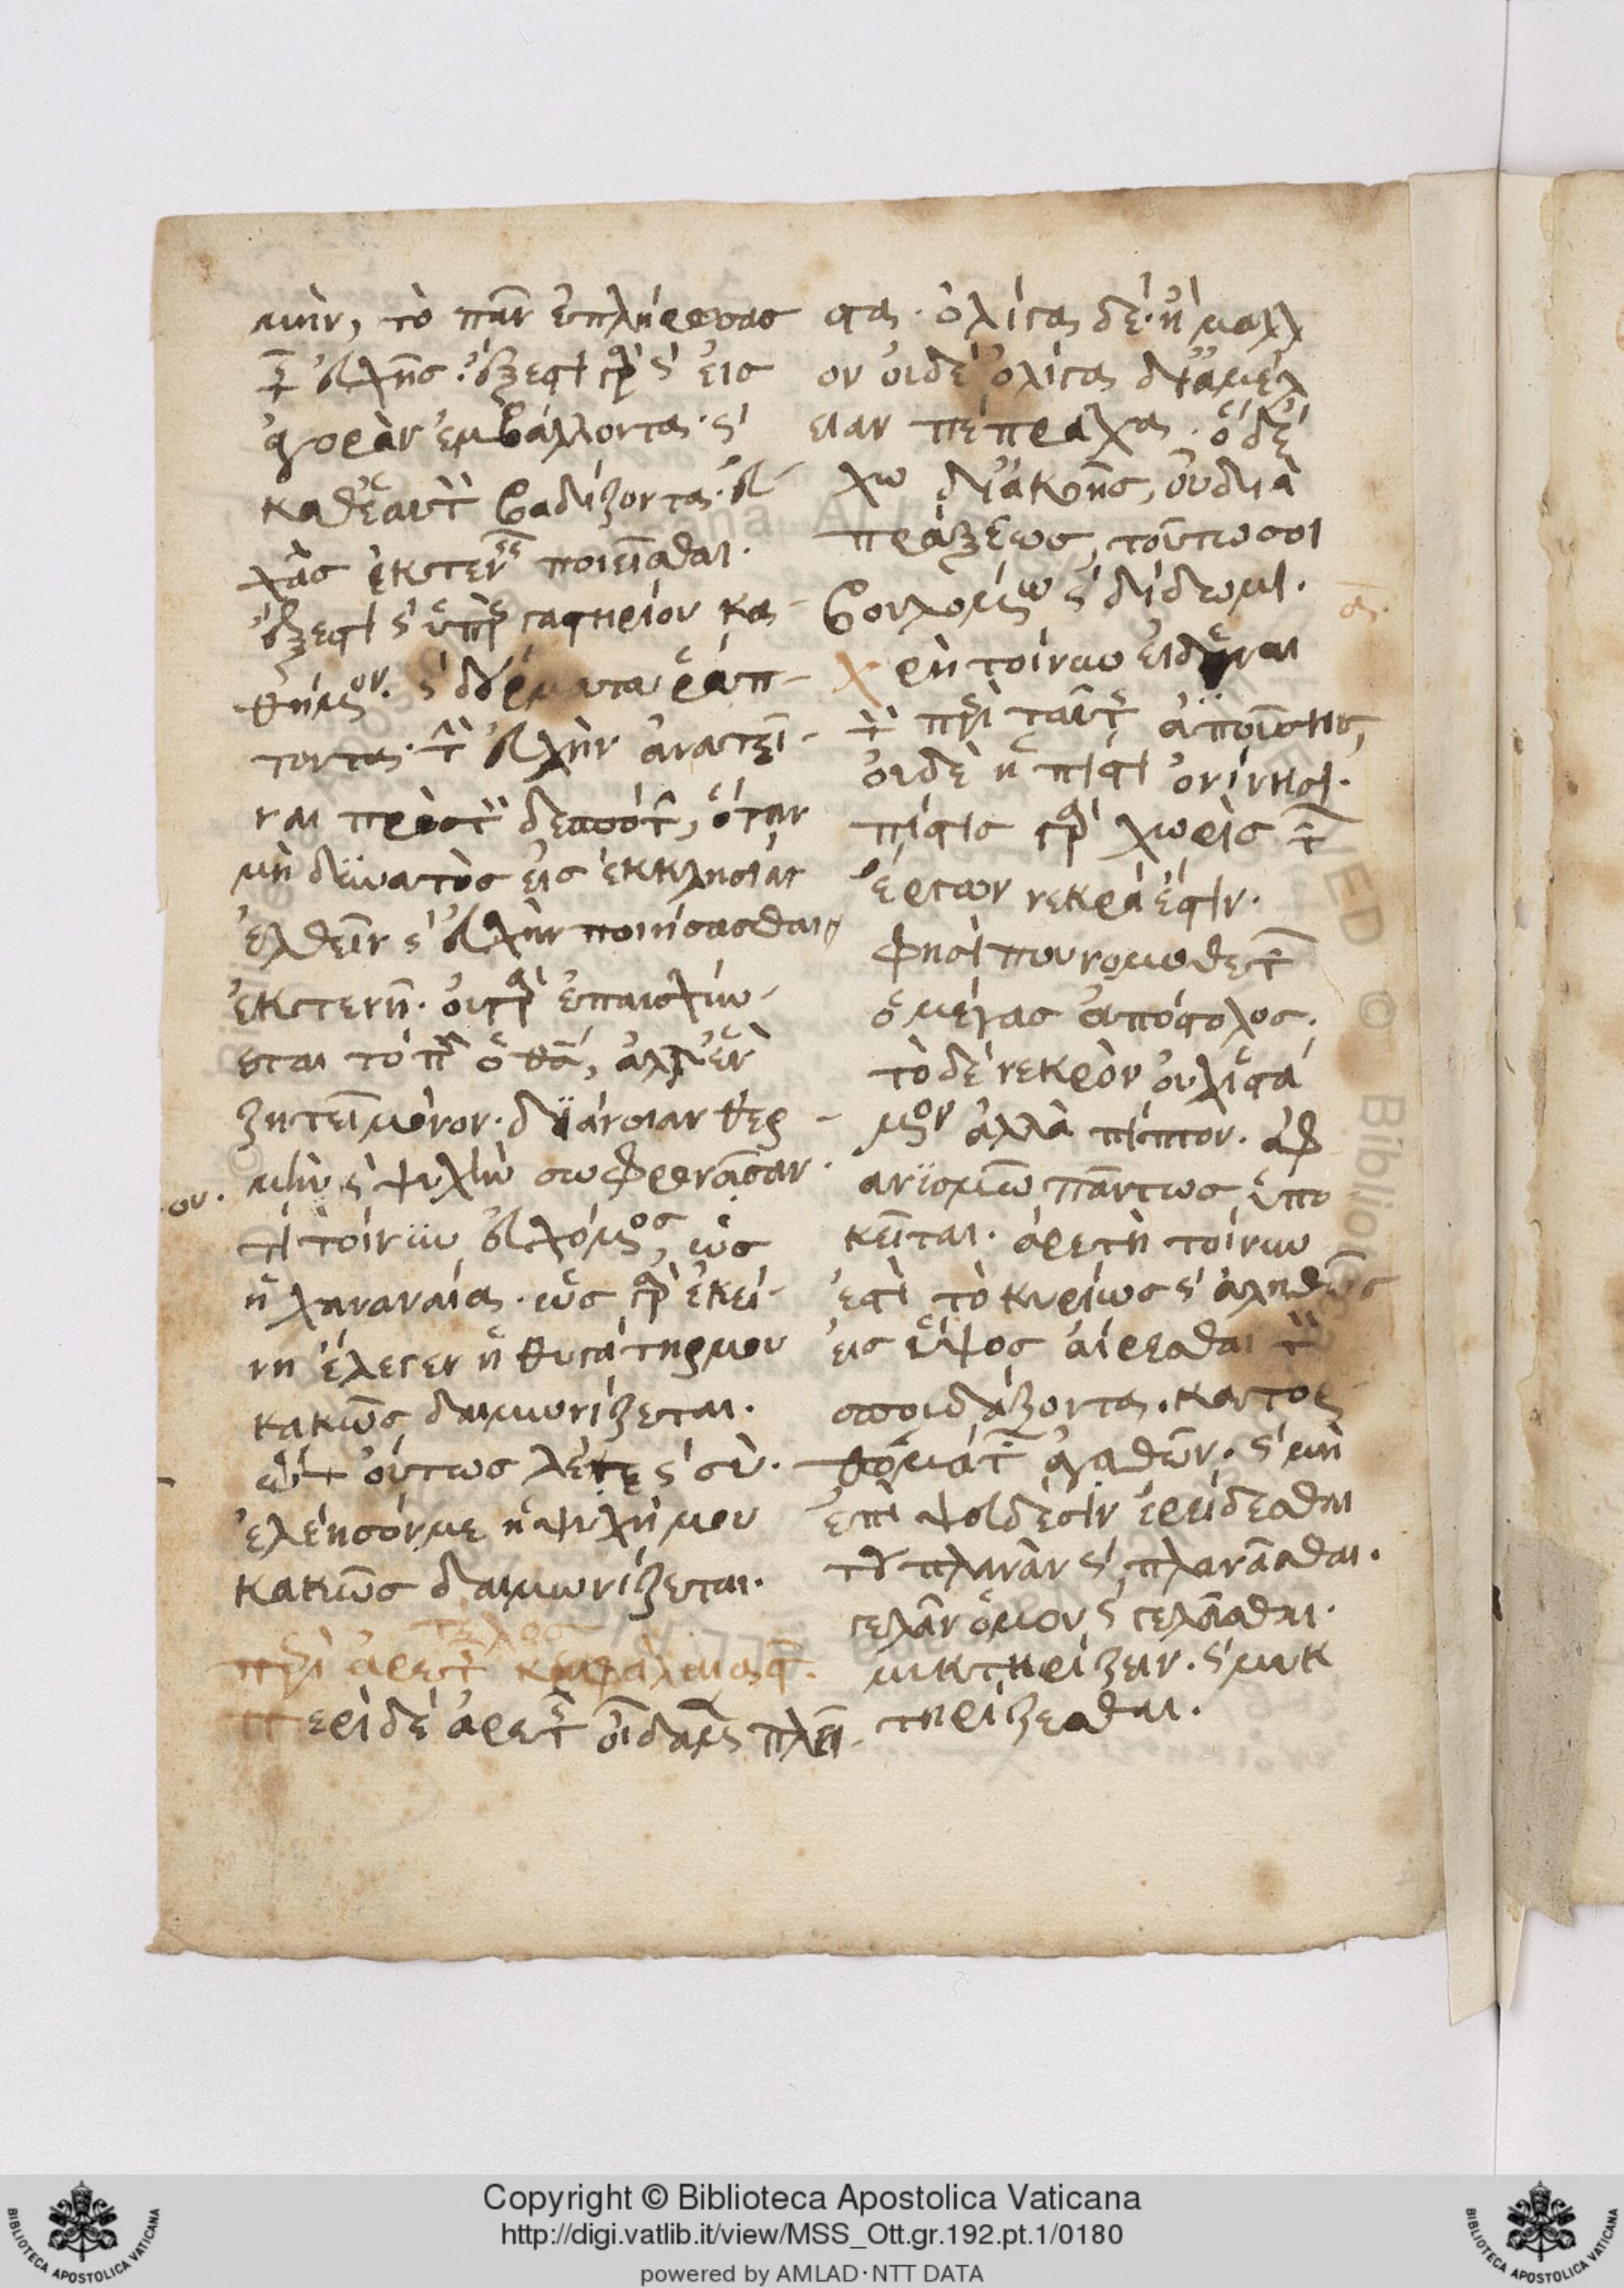 μὴν, τὸ πᾶν ἐπλήρωσας
τῆς εὐχῆς. ἔξεστι γὰρ καὶ εἰς
ἀγορὰν ἐμβάλλοντα. καὶ
καθ' ἑαυτὸν βαδίζοντα. εὐ-
χὰς ἐκτενεῖς ποιεῖσθαι.
ἔξεστι καὶ ὑπὲρ ἐργαστηρίου κα-
θήμενον. καὶ δέρματα ῥάπ-
τοντα. τὴν εὐχὴν ἀνατεῖ-
ναι πρὸς τὸν δεσπότην, ὅταν
μὴ δυνατὸς εἰς ἐκκλησίαν
ἐλθεῖν καὶ εὐχὴν ποιήσασθαι
ἐκτενῆ. οὐ γὰρ ἐπαισχύν-
εται τόπον ὁ θεὸς, ἀλλ' ἓν
ζητεῖ μόνον. διάνοιαν θερ-
μὴν καὶ ψυχὴν σωφρονοῦσαν.
ον.
τί τοίνυν εὐχόμενος, ὡς
ἡ χαναναία. ὡς γὰρ ἐκεί-
νη ἔλεγεν ἡ θυγάτηρ μου
κακῶς δαιμονίζεται.
οὕτως λέγε καὶ σύ.
ἐλέησόν με ἡ ψυχή μου
κακῶς δαιμονίζεται.
τέλος
περὶ ἀρετῆς κεφάλαια
περὶ δὲ ἀρετῆς οἶδα μὲν πλεῖ-
στα. ὀλίγα δὲ. ἢ μᾶλλ
ον οὐδὲ ὀλίγα δι' ἀμέλ
ειαν πέπραχα. ὃ δὲ
ἔχω δι' ἀκοῆς, οὐ διὰ
πράξεως, τοῦτό σοι
βουλομένω καὶ δίδωμι.
α.
χρὴ τοίνυν εἰδέναι
τὸν περὶ ταύτης ἀπο
οὐδὲ ἡ πίστις ὀνίνησι.
πίστις γὰρ χωρὶς τῶν
ἔργων νεκρά ἐστιν.
φησί που νομοθετῶν
ὁ μέγας ἀπόστολος.
τὸ δὲ νεκρὸν οὐχ ἱστά
μενον ἀλλὰ πίπτον. ἀφ
ανισμῶ πάντως ὑπο
κεῖται. ἀρετὴ τοίνυν
ἐστὶ τὸ κυρίως καὶ ἀληθῶς
εἰς ὕψος αἴρεσθαι τὸν
σπουδάζοντα. κατορ
θώμασι τῶν ἀγαθῶν. καὶ μὴ
ἐπὶ ψεύδεσιν ἐρείδεσθαι
τοῦ πλανᾶν καὶ πλανᾶσθαι.
γελᾶν ὁμοῦ καὶ γελᾶσθαι.
μυκτηρίζειν. καὶ μυκ
τηρίζεσθαι.
Copyright © Biblioteca Apostolica Vaticana
http://digi.vatlib.it/view/MSS_Ott.gr.192.pt.1/0180
powered by AMLAD·NTT DATA
BIBLIOTECA APOSTOLICA VATICANA
BIBLIOTECA APOSTOLICA VATICANA